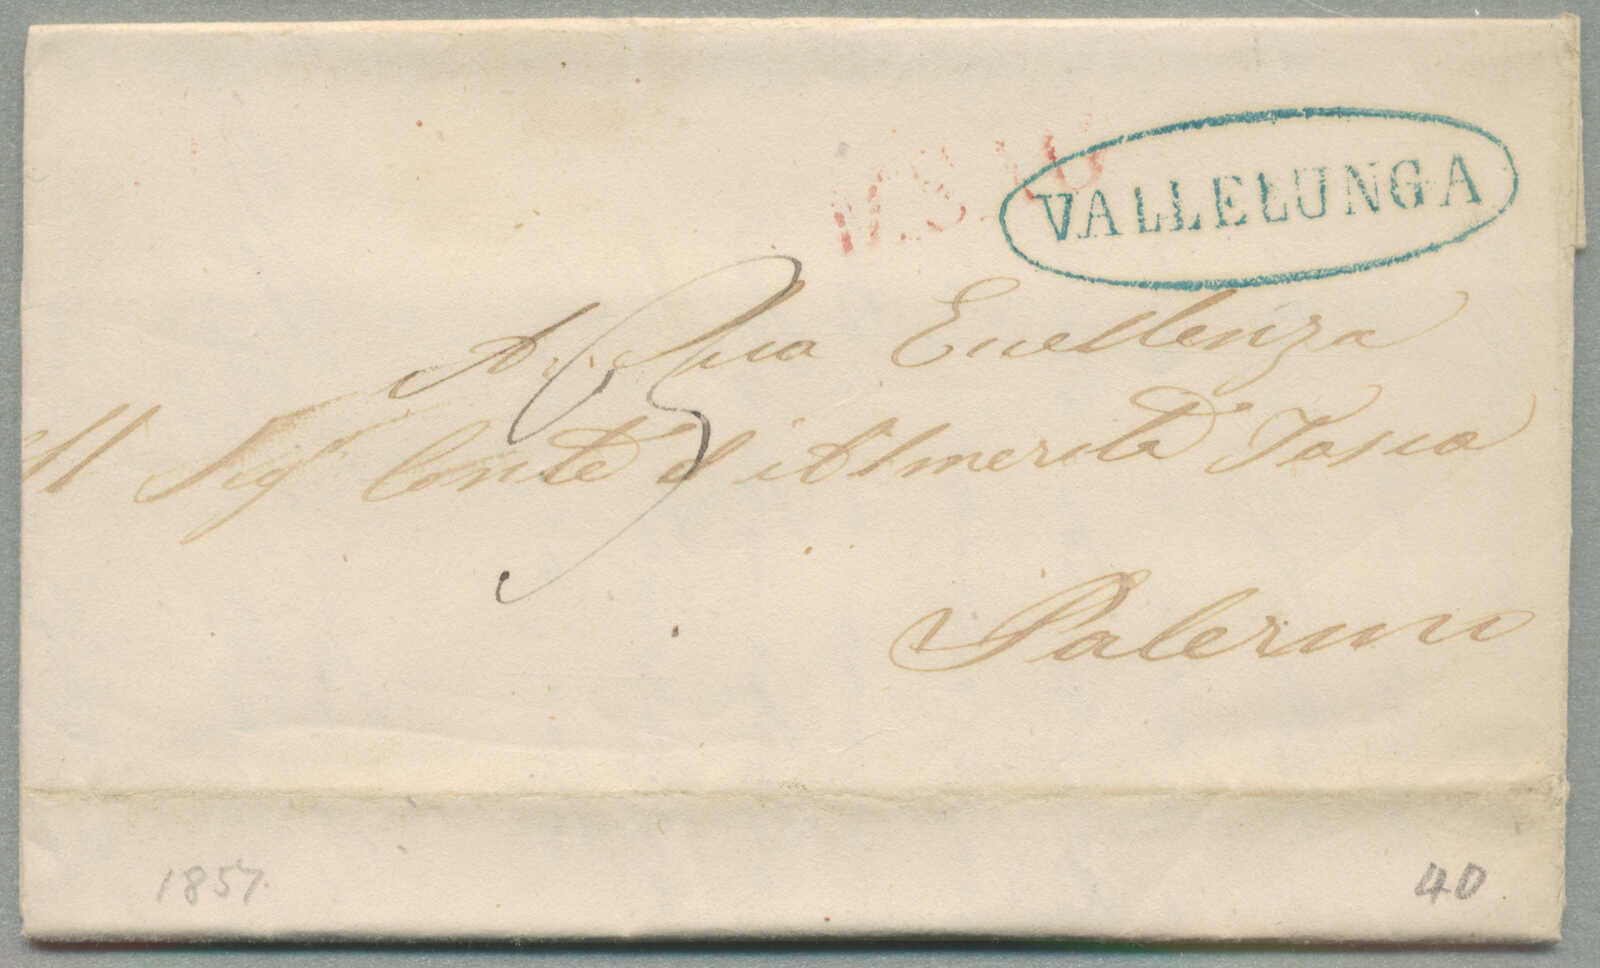 VALLELUNGA
A Sua Eccellenza
Il Sigr Conte d'Almerita Tasca
Palermo
1857
40